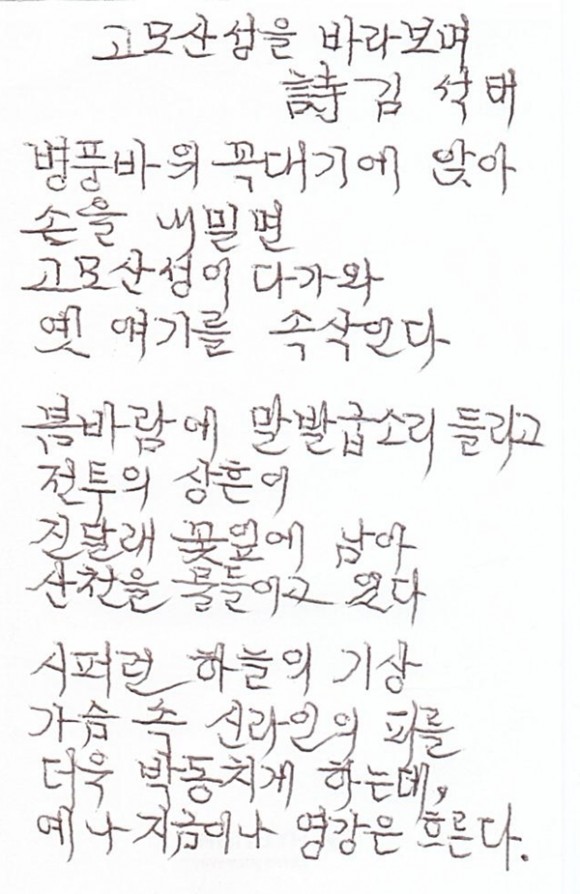 고모산성을 바라보며
詩 김 석태
병풍바의 꼭대기에 앉아
손을 내밀면
고모산성이 다가와
옛 얘기를 속삭인다
봄바람에 말발굽소리 들리고
전투의 상흔이
진달래 꽃잎에 남아
산천을 물들이고 있다
시퍼런 하늘의 기상
가슴 속 신라인의 피를
더욱 박동치게 하는데,
예나 지금이나 영강은 흐른다.